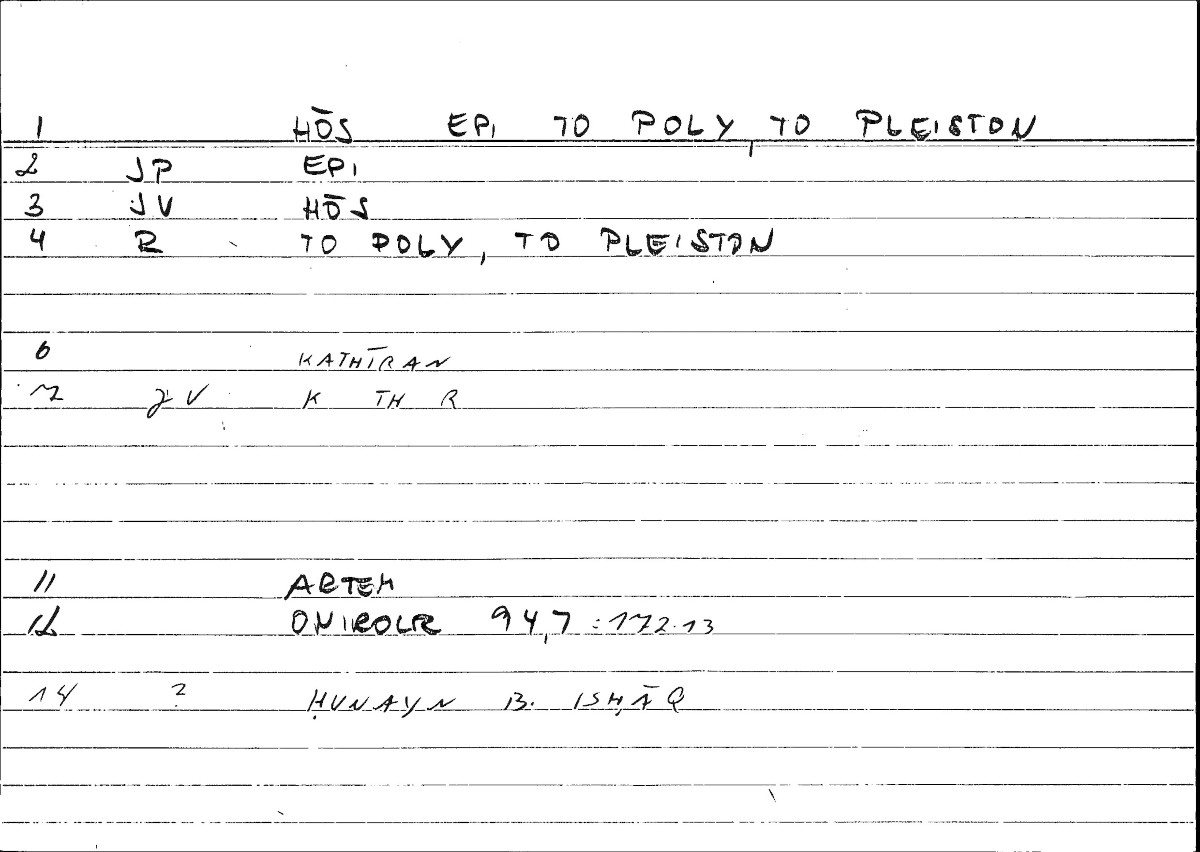 1 HŌS EPI TO POLY, TO PLEISTON
2 JP EPI
3 JV HŌS
4 R TO POLY, TO PLEISTON
6 KATHĪRAN
7 JV K TH R
11 ARTEM
12 ONIROCR 94,7 = 172.13
14 ? ḤUNAYN B. ISḤĀQ